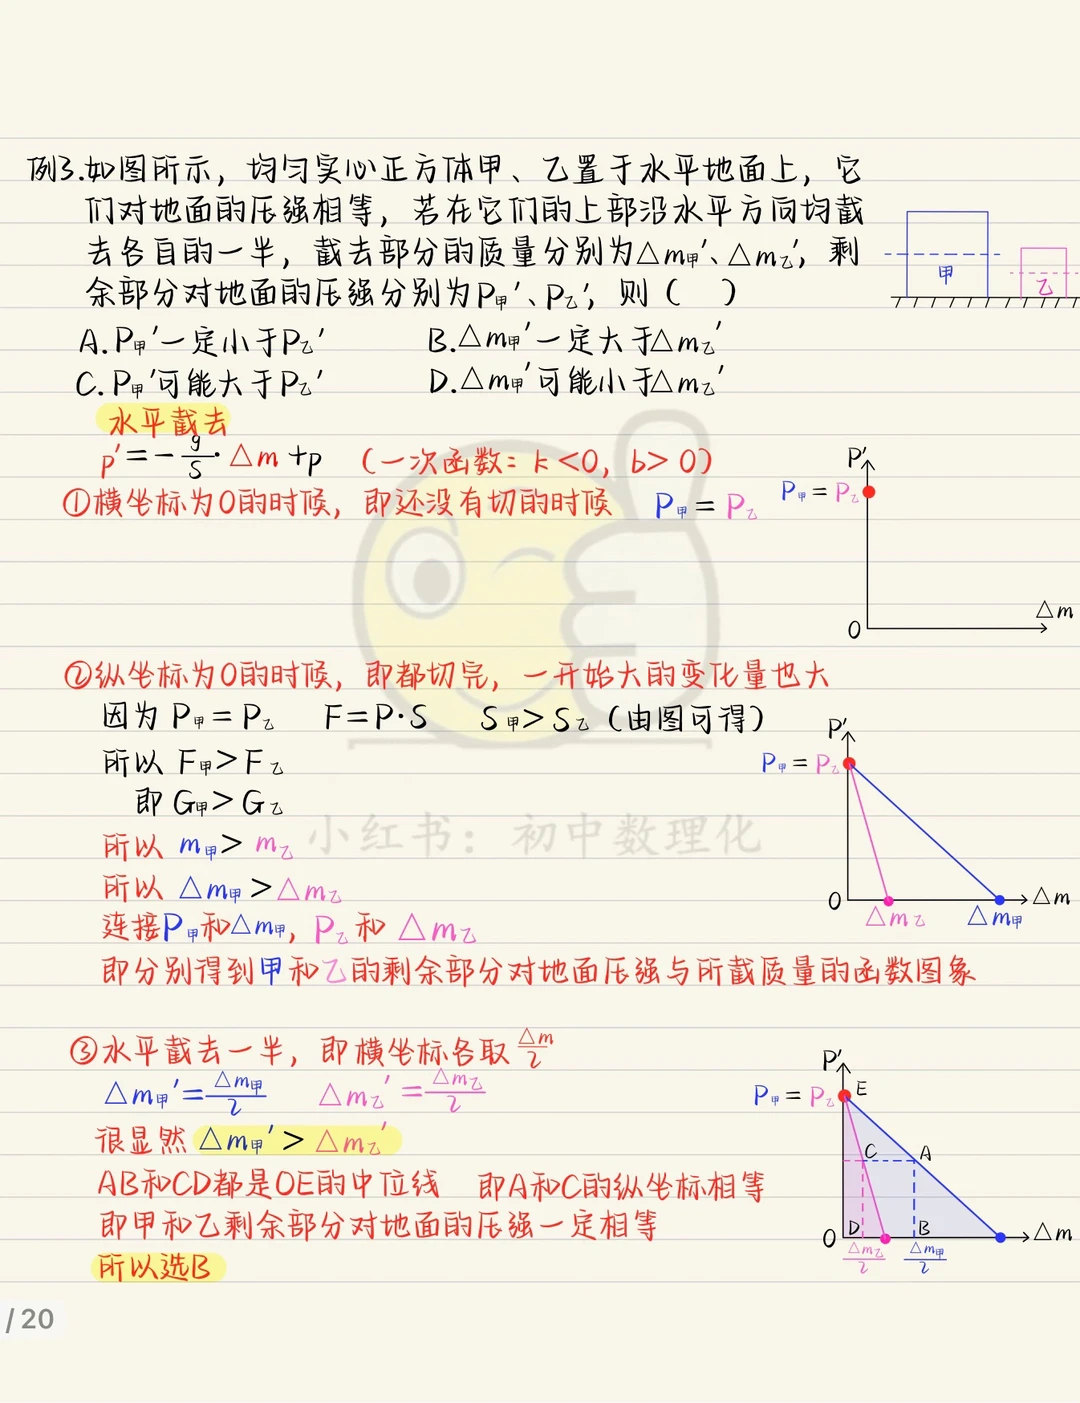 例3.如图所示，均匀实心正方体甲、乙置于水平地面上，它
们对地面的压强相等，若在它们的上部沿水平方向均截
去各自的一半，截去部分的质量分别为△m甲′、△m乙′，剩
余部分对地面的压强分别为P甲′、P乙′，则（ ）
甲
乙
A.P甲′一定小于P乙′ B.△m甲′一定大于△m乙′
C.P甲′可能大于P乙′ D.△m甲′可能小于△m乙′
水平截去
p′=-g/S·△m+p （一次函数：k<0，b>0）
①横坐标为0的时候，即还没有切的时候 P甲=P乙
P′
P甲=P乙
0
△m
②纵坐标为0的时候，即都切完，一开始大的变化量也大
因为 P甲=P乙 F=P·S S甲>S乙（由图可得）
所以 F甲>F乙
即 G甲>G乙
所以 m甲>m乙
所以 △m甲>△m乙
连接P甲和△m甲，P乙和△m乙
即分别得到甲和乙的剩余部分对地面压强与所截质量的函数图象
P′
P甲=P乙
0
△m
△m乙 △m甲
小红书：初中数理化
③水平截去一半，即横坐标各取△m/2
△m甲′=△m甲/2 △m乙′=△m乙/2
很显然 △m甲′>△m乙′
AB和CD都是OE的中位线 即A和C的纵坐标相等
即甲和乙剩余部分对地面的压强一定相等
所以选B
P′
P甲=P乙 E
C A
0 D B △m
△m乙/2 △m甲/2
/20